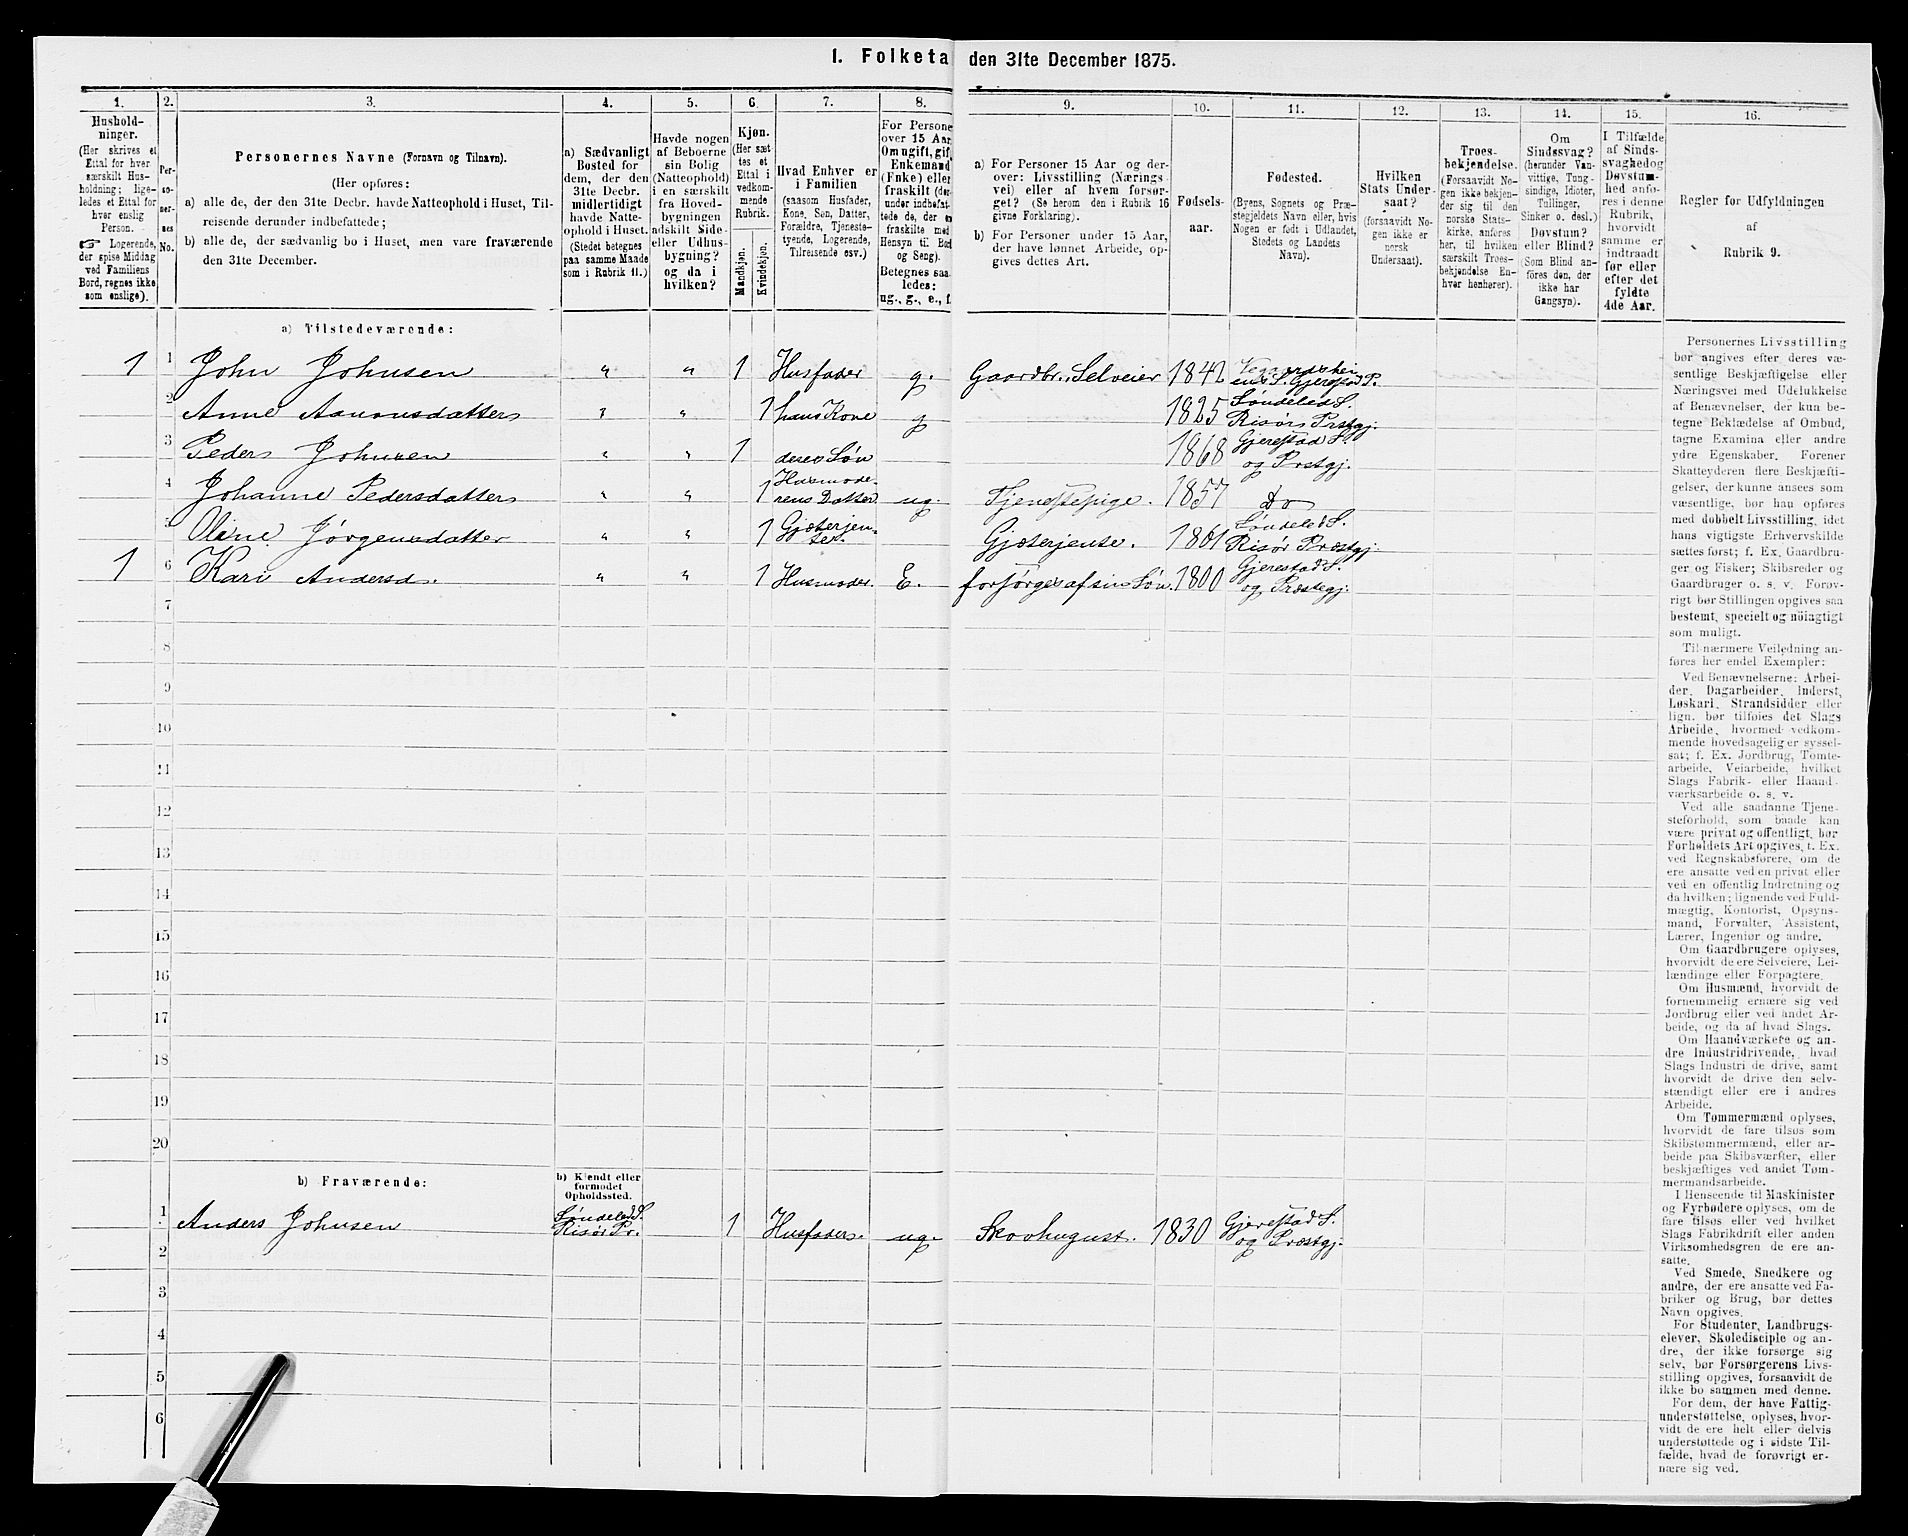 1. Folketa den 31te December 1875.
1. 2. 3. 4. 5. 6. 7. 8. 9. 10. 11. 12. 13. 14. 15. 16.
Hushold-
ninger.
(Her skrives et
Ettal for hver
særskilt Hus-
holdning; lige-
ledes et Ettal for
hver enslig
Person.
☞ Logerende,
der spise Middag
ved Familiens
Bord, regnes ikke
som enslige).
Per-
so-
ner-
nes
No.
Personernes Navne (Fornavn og Tilnavn).
(Her opføres:
a) alle de, der den 31te Decbr. havde Natteophold i Huset, Til-
reisende derunder indbefattede;
b) alle de, der sædvanlig bo i Huset, men vare fraværende
den 31te December.
a) Sædvanligt
Bosted for
dem, der den
31te Decbr.
midlertidigt
havde Natte-
ophold i Huset.
(Stedet betegnes
paa samme Maade
som i Rubrik 11.)
Havde nogen
af Beboerne
sin Bolig
(Natteophold)
i en særskilt
fra Hoved-
bygningen
adskilt Side-
eller Udhus-
bygning?
og da i
hvilken?
Kjøn.
(Her sæt-
tes et
Ettal i
vedkom-
mende
Rubrik.
Mandkjøn.
Kvindekjøn.
Hvad Enhver er
i Familien
(saasom Husfader,
Kone, Søn, Datter,
Forældre, Tjeneste-
tyende, Logerende,
Tilreisende osv.)
For Persone
over 15 Aar
Om ugift, gif
Enkemand
(Fnke) elle
fraskilt (der-
under indbefat-
tede de, der e
fraskilte med
Hensyn til Bo
og Seng).
Betegnes saa-
ledes:
ug., g., e., f.
a) For Personer 15 Aar og der-
over: Livsstilling (Nærings-
vei) eller af hvem forsør-
get? (Se herom den i Rubrik 16
givne Forklaring).
b) For Personer under 15 Aar,
der have lønnet Arbeide, op-
gives dettes Art.
Fødsels-
aar.
Fødested.
(Byens, Sognets og Præ-
stegjeldets Navn eller, hvis
Nogen er født i Udlandet,
Stedets og Landets
Navn).
Hvilken
Stats Under-
saat?
(forsaavidt No-
gen ikke er
norsk
Undersaat).
Troes-
bekjendelse.
(Forsaavidt No-
gen ikke bekjen-
der sig til den
norske Stats-
kirke, anføres
her, til hvilken
særskilt Troes-
bekjendelse En-
hver henhører).
Om
Sindssvag?
(herunder Van-
vittige, Tung-
sindige, Idioter,
Tullinger,
Sinker o. desl.)
Døvstum?
eller Blind?
(Som Blind an-
føres den, der
ikke har
Gangsyn).
I Tilfælde
af Sinds-
svaghed og
Døvstum-
hed anfø-
res i denne
Rubrik,
hvorvidt
samme er
indtraadt
før eller
efter det
fyldte
4de Aar.
Regler for Udfyldningen
af
Rubrik 9.
a) Tilstedeværende:
1 1 John Johnsen " " 1 Husfader g. Gaardbr. Selveier 1842 Gjerestad P.
2 Anne Aanonsdatter " " 1 hans Kone g 1825 Søndeled S. Risørs Prstgj.
3 Peder Johnsen " " 1 deres Søn 1868 Gjerestad S. og Prstgj.
4 Johanne Pedersdatter " " 1 Husmode-rens Datter ug. Tjenestepige. 1857 Do
5 Oline Jørgensdatter " " 1 Gjæterjen-te. Gjæterjente. 1861 Søndeled S. Risør Præstgj.
1 6 Kari Andersd. " " 1 Husmoder E. forsørges af sin Søn. 1800 Gjerestad S. og Præstegj.
7
8
9
10
11
12
13
14
15
16
17
18
19
20
b) Fraværende:
b) Kjendt eller
formodet
Opholdssted.
1 Anders Johnsen Søndeled S. Risør Pr. 1 Husfader. ug. Skovhugust. 1830 Gjerestad S. og Præstgj.
2
3
4
5
6
Personernes Livsstilling
bør angives efter deres væ-
sentlige Beskjæftigelse eller
Næringsvei med Udelukkelse
af Benævnelser, der kun be-
tegne Beklædelse af Ombud,
tagne Examina eller andre
ydre Egenskaber. Forener
Skatteyderen flere Beskjæfti-
gelser, der kunne ansees som
væsentlige, bør han opføres
med dobbelt Livsstilling, idet
hans vigtigste Erhvervskilde
sættes først; f. Ex. Gaardbru-
ger og Fisker; Skibsreder og
Gaardbruger o. s. v. Forøv-
rigt bør Stillingen opgives saa
bestemt, specielt og nöiagtigt
som muligt.
Til nærmere Veiledning an-
føres her endel Exempler:
Ved Benævnelserne: Arbei-
der, Dagarbeider, Inderst,
Løskarl, Strandsidder eller
lign. bør tilføies det Slags
Arbeide, hvormed vedkom-
mende hovedsagelig er syssel-
sat; f. Ex. Jordbrug, Tomte-
arbeide, Veiarbeide, hvilket
Slags Fabrik- eller Haand-
værksarbeide o. s. v.
Ved alle saadanne Tjene-
steforhold, som baade kan
være privat og offentligt, bør
Forholdets Art opgives, t. Ex.
ved Regnskabsførere, om de
ere ansatte ved en privat eller
ved en offentlig Indretning og
da hvilken; lignende ved Fuld-
mægtig, Kontorist, Opsyns-
mand, Forvalter, Assistent,
Lærer, Ingeniør og andre.
Om Gaardbrugere oplyses,
hvorvidt de ere Selveiere, Lei-
lændinge eller Forpagtere.
Om Husmænd, hvorvidt de
fornemmelig ernære sig ved
Jordbrug eller ved andet Ar-
beide, og da af hvad Slags.
Om Haandværkere og an-
dre Industridrivende, hvad
Slags Industri de drive, samt
hvorvidt de drive den selv-
stændigt eller ere i andres
Arbeide.
Om Tømmermænd oplyses,
hvorvidt de fare tilsøs som
Skibstømmermænd, eller ar-
beide paa Skibsværfter, eller
beskjæftiges ved andet Tøm-
mermandsarbeide.
I Henseende til Maskinister
og Fyrbødere oplyses, om de
fare tilsøs eller ved hvilket
Slags Fabrikdrift eller anden
Virksomhedsgren de ere an-
satte.
Ved Smede, Snedkere og
andre, der ere ansatte ved Fa-
briker og Brug, bør dettes
Navn opgives.
For Studenter, Landbrugs-
elever, Skoledisciple og an-
dre, der ikke forsørge sig
selv, bør Forsørgerens Livs-
stilling opgives, forsaavidt de
ikke bo sammen med denne.
For dem, der have Fattig-
understøttelse, oplyses, hvor-
vidt de ere helt eller delvis
understøttede og i sidste Til-
fælde, hvad de forøvrigt er-
nære sig ved.